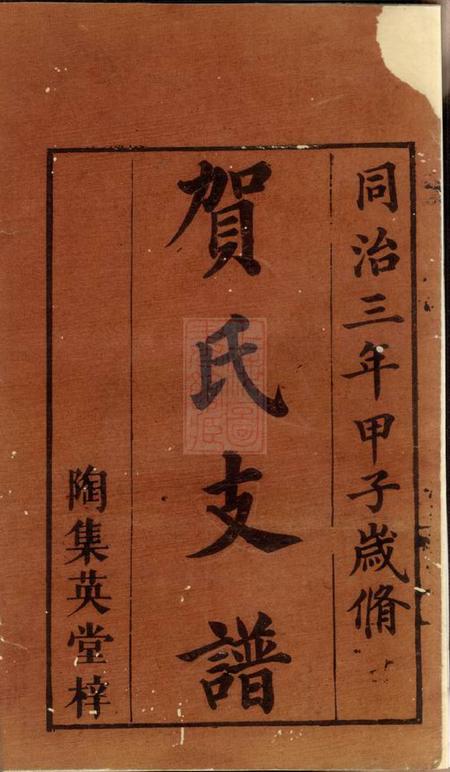 同治三年甲子歲脩
賀氏支譜
陶集英堂梓